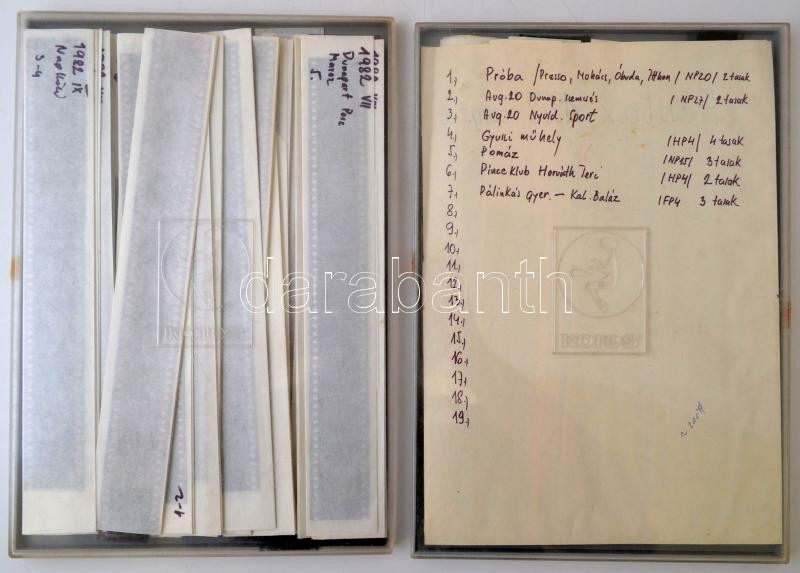 1982 IX
Napközi
3-4
1982 VII
Dunapart Presz
Maros
5.
1., Próba /Presso, Mohács, Óbuda, Itthon / NP20/ 2 tasak
2., Aug. 20 Dunap. / NP27/ 2 tasak
3., Aug. 20 Nyuld. Sport
4., Gyuszi műhely /HP4/ 4 tasak
5., Pomáz /NP15/ 3 tasak
6., Pince Klub Horváth Teri /HP4/ 2 tasak
7., Pálinkás Gyer. – Kal. Baláz /FP4 3 tasak
8.,
9.,
10.,
11.,
12.,
13.,
14.,
15.,
16.,
17.,
18.,
19.,
darabanth